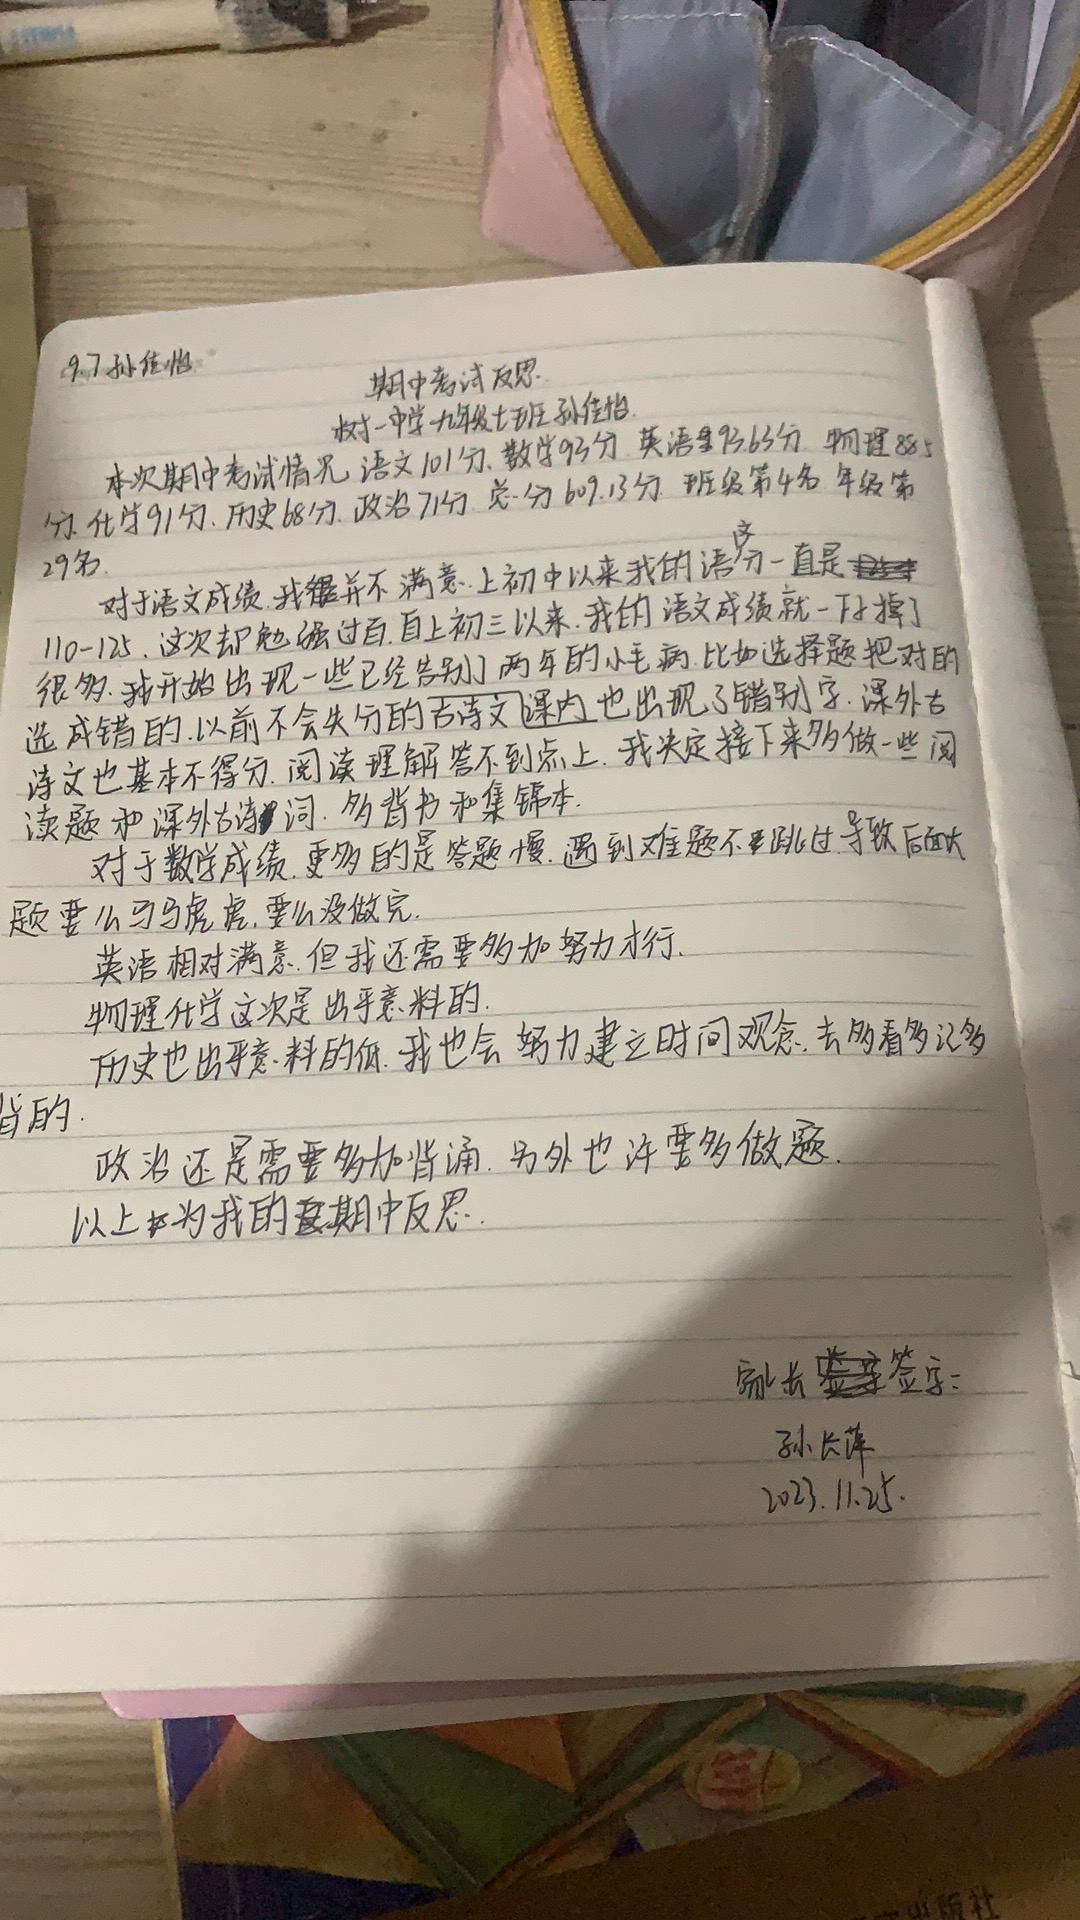 9.7 孙佳怡
期中考试反思.
树一中学九年级七班 孙佳怡.
本次期中考试情况,语文101分、数学93分 英语93.63分 物理88.5
分、化学91分、历史68分、政治71分 总分609.13分 班级第4名 年级第
29名.
对于语文成绩.我并不满意.上初中以来我的语文分一直是
110-125.这次却勉强过百.自上初三以来.我的语文成绩就一下子掉了
很多.我开始出现一些已经告别了两年的小毛病.比如选择题把对的
选成错的.以前不会失分的古诗文课内也出现了错别字.课外古
诗文也基本不得分.阅读理解答不到点上.我决定接下来多做一些阅
读题和课外古诗词.多背书和集锦本.
对于数学成绩.更多的是答题慢.遇到难题不跳过.导致后面大
题要么马马虎虎.要么没做完.
英语相对满意.但我还需要多加努力才行.
物理化学这次是出乎意料的.
历史也出乎意料的低.我也会努力建立时间观念.去多看多记多
背的.
政治还是需要多加背诵.另外也许要多做题.
以上为我的期中反思.
家长签字:
孙长萍
2023.11.25.
出版社